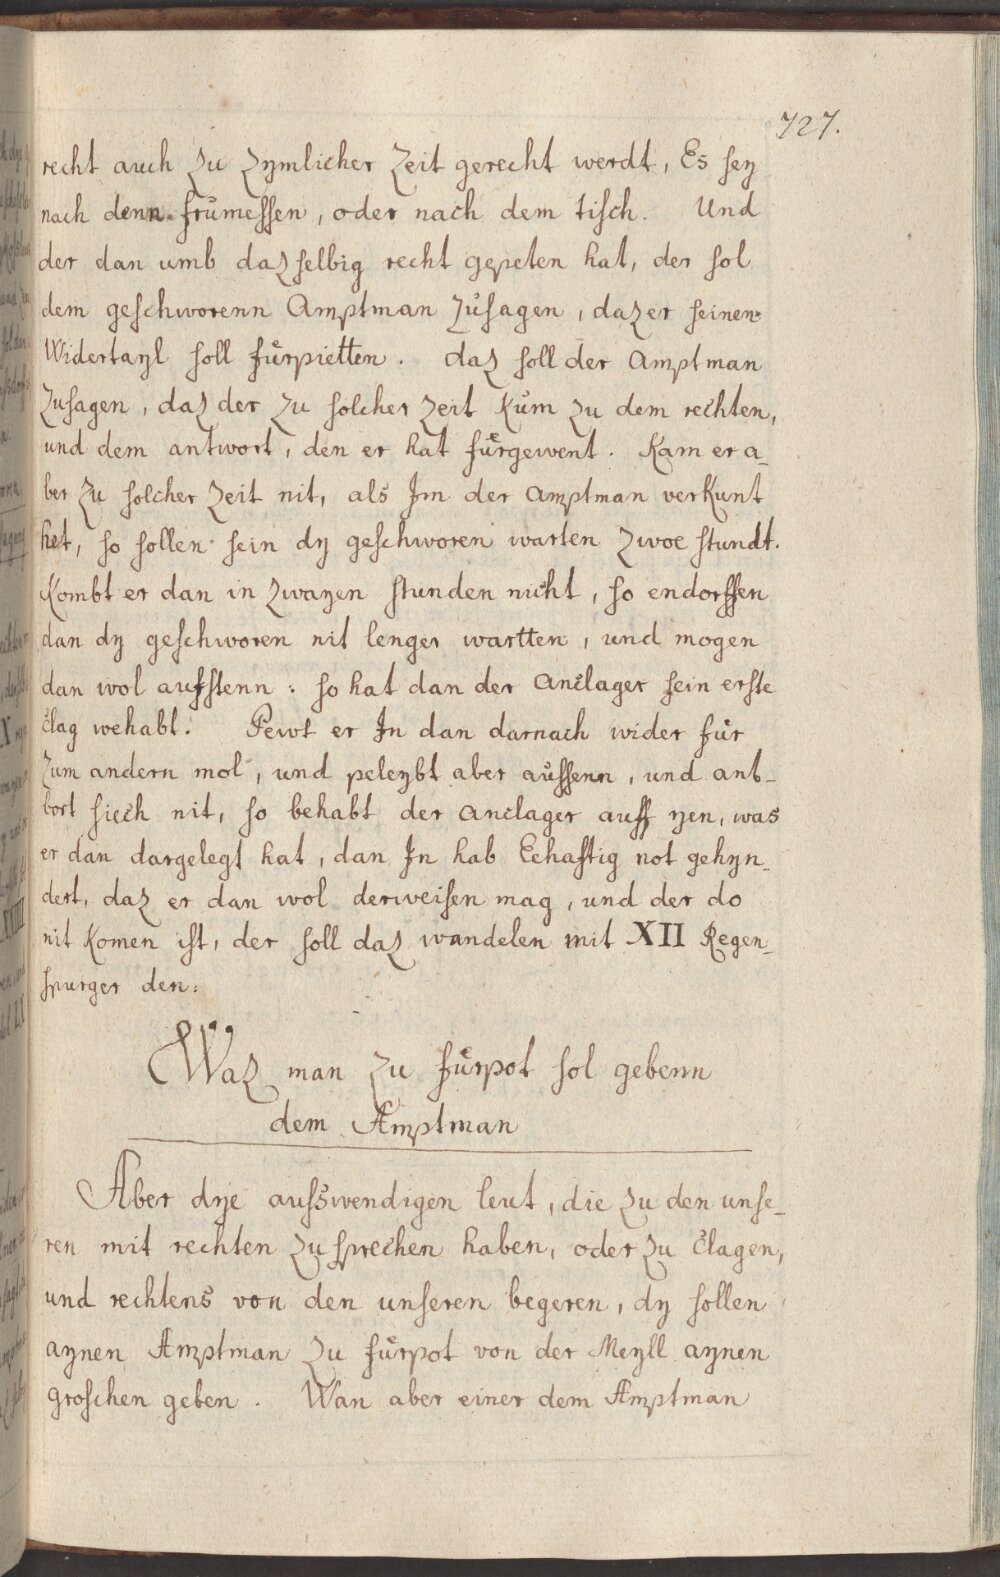 727.
recht auch zu zymlicher Zeit gerecht werdt, Es sey
nach denn frůmessen, oder nach dem tisch. Und
der dan umb daz selbig recht gepeten hat, der sol
dem geschworenn Amptman zůsagen, daz er seinen
Widertayl soll fůrpietten. daz soll der Amptman
zusagen, daz der zu solcher zeit kům zu dem rechten,
und dem antwort, den er hat fůrgewent. Kam er a_
ber zu solcher zeit nit, als Im der Amptman verkunt
het, so sollen sein dy geschworen warten zwoe stundt.
Kombt er dan in zwayen stunden nicht, so endorffen
dan dy geschworen nit lenger wartten, und mogen
dan wol aufstenn: so hat dan der Anclager sein erste
clag wehabt. Pewt er In dan darnach wider fůr
zum andern mol, und peleybt aber aůssenn, und ant_
bort siech nit, so behabt der anclager auff yen, was
er dan dargelegt hat, dan In hab Eehaftig not gehyn_
dert, daz er dan wol derweisen mag, und der do
nit komen ist, der soll daz wandelen mit XII Regen_
spurger den:
Waz man zu fůrpot sol gebenn
dem Amptman
Aber dye ausswendigen leut, die zu den unse_
ren mit rechten zu sprechen haben, oder zu clagen,
und rechtens von den unseren begeren, dy sollen
aynen Amptman zu fůrpot von der Meyll aynen
groschen geben. Wan aber einer dem Amptman